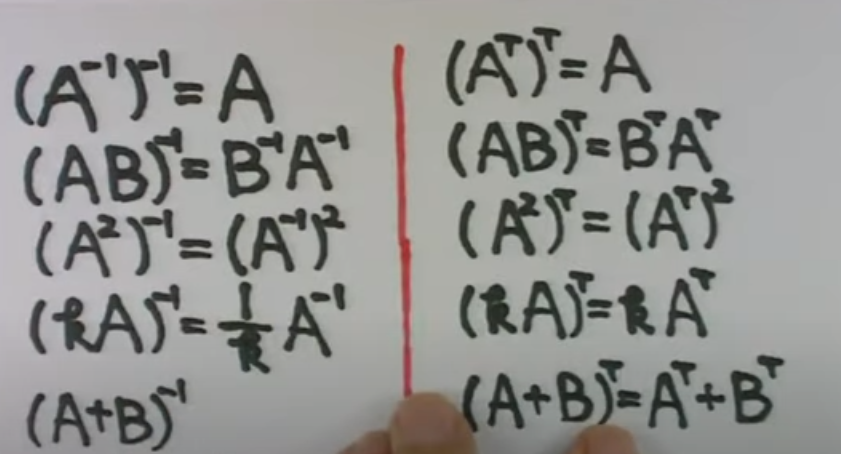 (A⁻¹)⁻¹=A
(AB)⁻¹=B⁻¹A⁻¹
(A²)⁻¹=(A⁻¹)²
(kA)⁻¹=1/k A⁻¹
(A+B)⁻¹
(Aᵀ)ᵀ=A
(AB)ᵀ=BᵀAᵀ
(A²)ᵀ=(Aᵀ)²
(kA)ᵀ=kAᵀ
(A+B)ᵀ=Aᵀ+Bᵀ